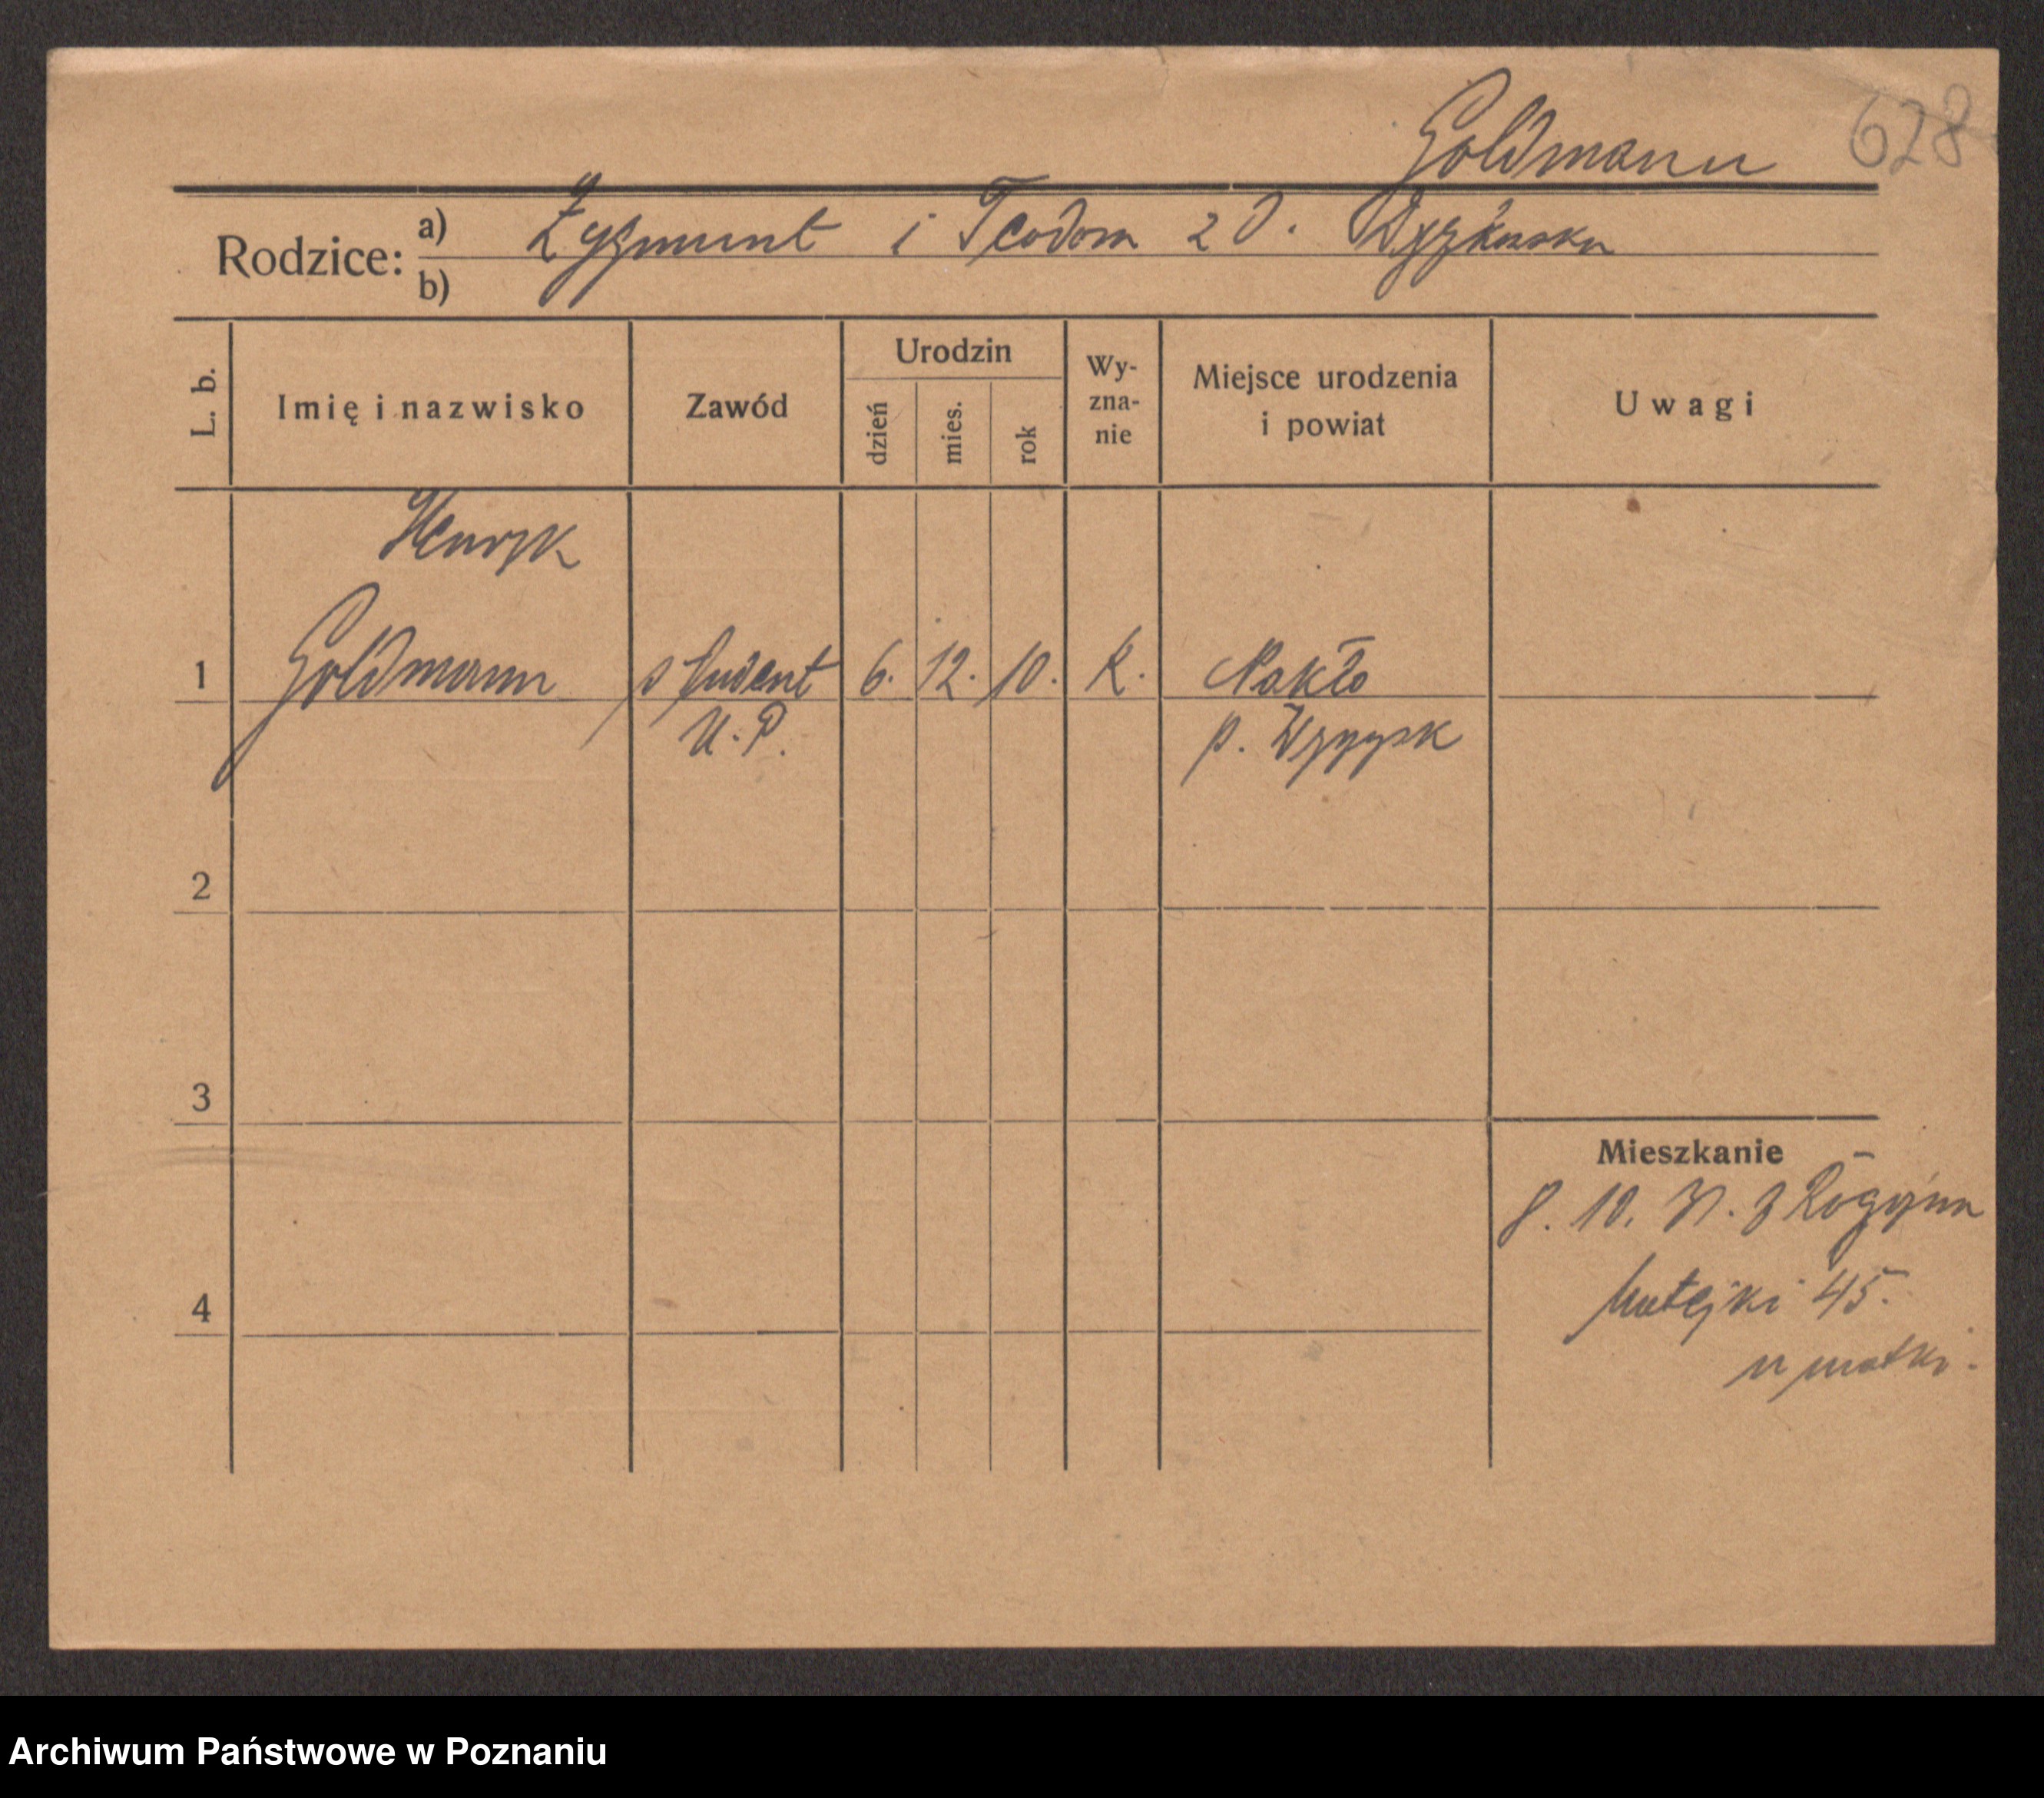 Goldmann 628
Rodzice: a) Zygmunt i Teodora z d.
b)
L. b.
Imię i nazwisko
Zawód
Urodzin
dzień
mies.
rok
Wy-
zna-
nie
Miejsce urodzenia
i powiat
Uwagi
Henryk
1 Goldmann student 6. 12. 10. k. Nakło
U. P. p. Wyrzysk
2
3
4
Mieszkanie
8. 10. z
Matejki 45.
u matki.
Archiwum Państwowe w Poznaniu